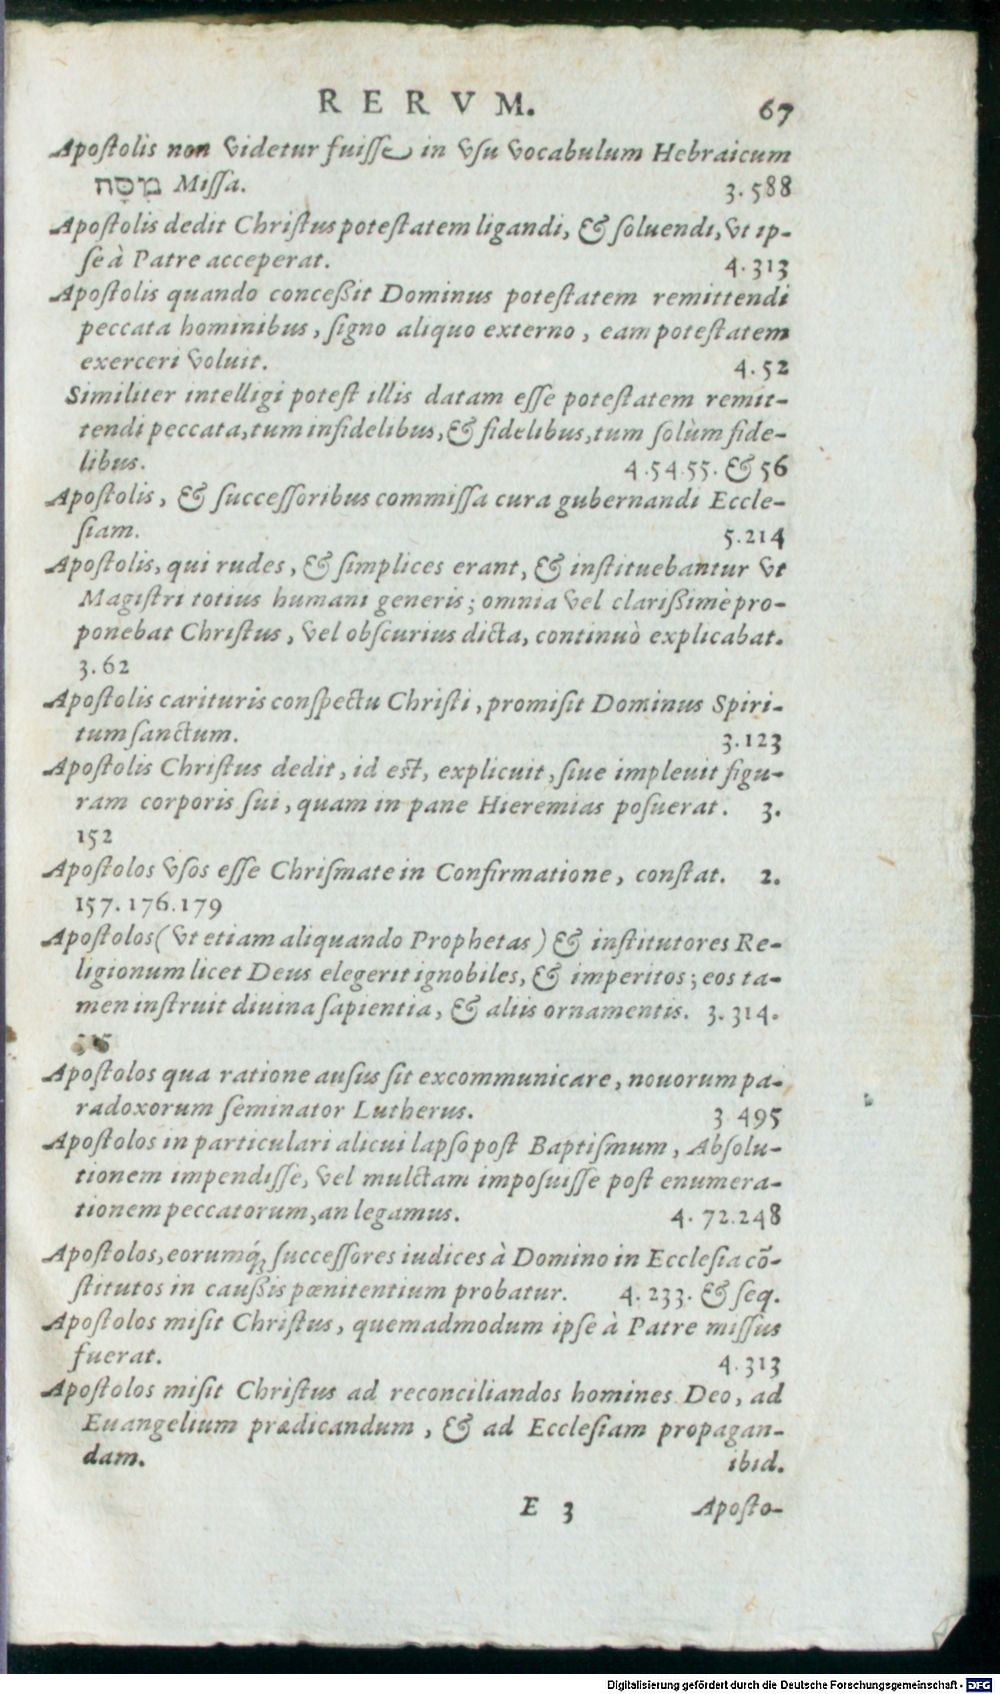 RERVM. 67
Apostolis non videtur fuisse in vsu vocabulum Hebraicum
מִסָּה Missa. 3.588
Apostolis dedit Christus potestatem ligandi, & soluendi, vt ip-
se à Patre acceperat. 4.313
Apostolis quando conceßit Dominus potestatem remittendi
peccata hominibus, signo aliquo externo, eam potestatem
exerceri voluit. 4.52
Similiter intelligi potest illis datam esse potestatem remit-
tendi peccata, tum infidelibus, & fidelibus, tum solùm fide-
libus. 4.54.55. & 56
Apostolis, & successoribus commissa cura gubernandi Eccle-
siam. 5.214
Apostolis, qui rudes, & simplices erant, & instituebantur vt
Magistri totius humani generis; omnia vel clarißimè pro-
ponebat Christus, vel obscurius dicta, continuò explicabat.
3.62
Apostolis carituris conspectu Christi, promisit Dominus Spiri-
tum sanctum. 3.123
Apostolis Christus dedit, id est, explicuit, siue impleuit figu-
ram corporis sui, quam in pane Hieremias posuerat. 3.
152
Apostolos vsos esse Chrismate in Confirmatione, constat. 2.
157.176.179
Apostolos (vt etiam aliquando Prophetas) & institutores Re-
ligionum licet Deus elegerit ignobiles, & imperitos; eos ta-
men instruit diuina sapientia, & aliis ornamentis. 3. 314.
315
Apostolos qua ratione ausus sit excommunicare, nouorum pa-
radoxorum seminator Lutherus. 3.495
Apostolos in particulari alicui lapso post Baptismum, Absolu-
tionem impendisse, vel mulctam imposuisse post enumera-
tionem peccatorum, an legamus. 4. 72.248
Apostolos, eorumq́; successores iudices à Domino in Ecclesia cō-
stitutos in caußis pœnitentium probatur. 4. 233. & seq.
Apostolos misit Christus, quemadmodum ipse à Patre missus
fuerat. 4.313
Apostolos misit Christus ad reconciliandos homines Deo, ad
Euangelium prædicandum, & ad Ecclesiam propagan-
dam. ibid.
E 3 Aposto-
Digitalisierung gefördert durch die Deutsche Forschungsgemeinschaft - DFG